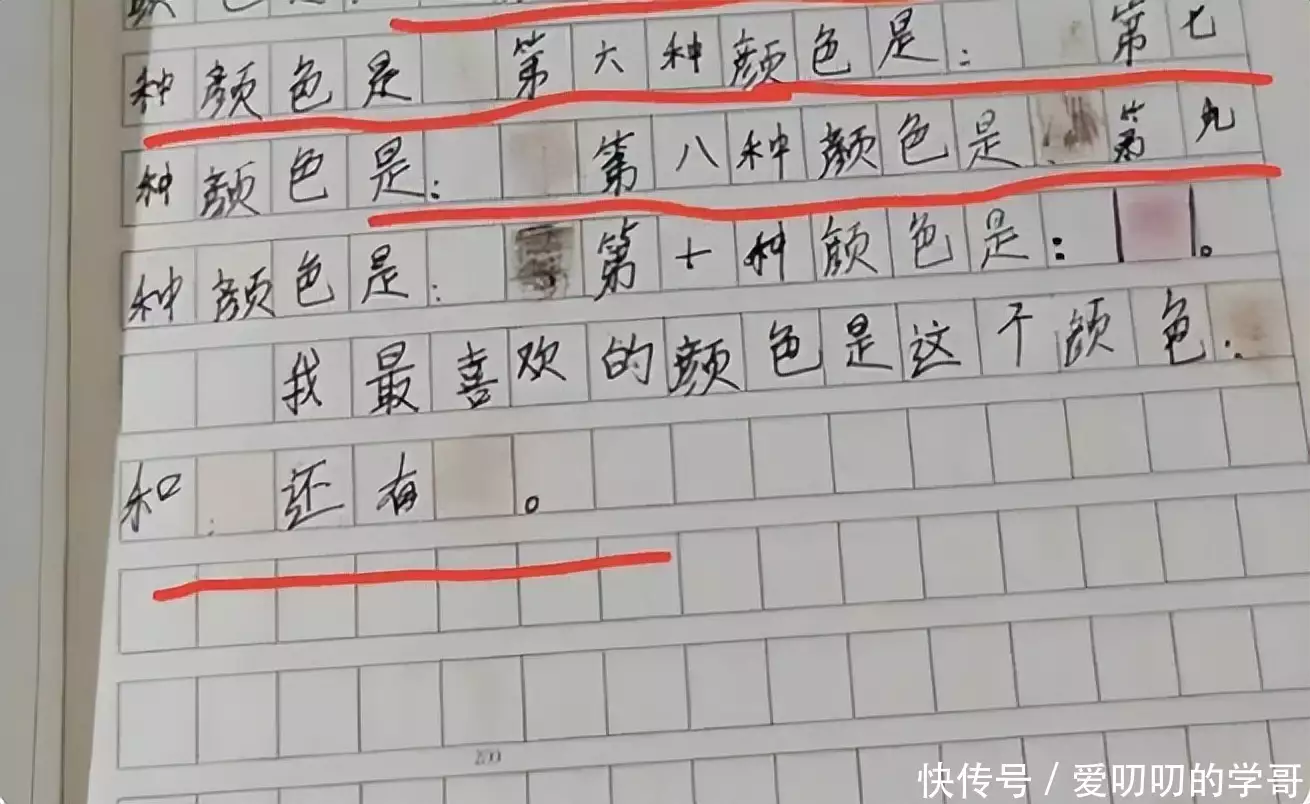 颜色是:
种颜色是 第六种颜色是: 第七
种颜色是: 第八种颜色是: 第九
种颜色是: 第十种颜色是: 。
我最喜欢的颜色是这个颜色:
和: 还有 。
200
快传号 / 爱叨叨的学哥